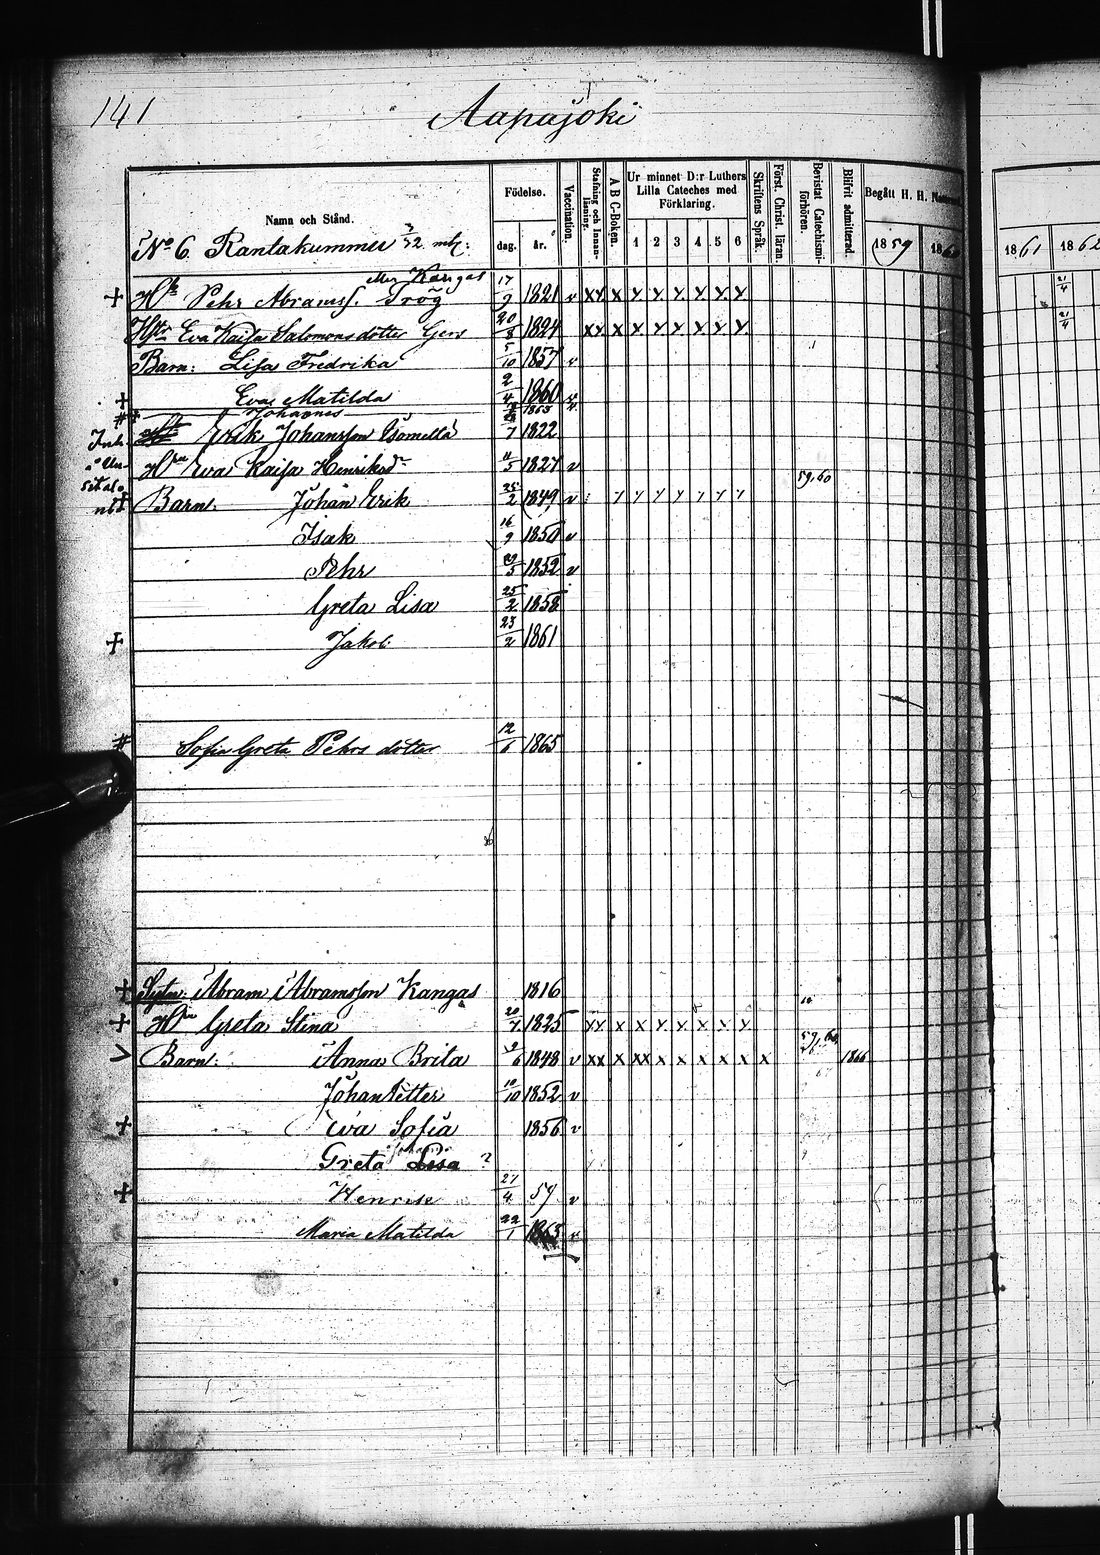 141
Aapajoki
Namn och Stånd.
Födelse.
dag. år.
Vaccination.
Stafning och Innanläsning.
A B C-Boken.
Ur minnet D:r Luthers Lilla Cateches med Förklaring.
1 2 3 4 5 6
Skriftens Språk.
Först. Christ. läran.
Bevistat Catechismiförhören.
Blifvit admitterad.
Begått H. H.
1859 1860 1861 1862
No 6. Rantakummu 3/32 mtl:
Kangas
+ Pehr Abramss. Frög 17/9 1821 v xx x y y y y y y 21/4
Hstr Eva Kaisa Salomonsdotter Gers 20/8 1824 xx x y y y y y y 21/4
Barn: Lisa Fredrika 5/10 1857 v
+ Eva Matilda 2/4 1860 v
Johannes 1863 v
Erik Johansson Isometsä 7 1822
Hru Eva Kaisa Henriksdr 11/5 1827 v
59,60
Barn. Johan Erik 25/2 1849 v y y y y y y y
Isak 16/9 1850 v
Pehr 29/5 1852 v
Greta Lisa 25/2 1858
+ Jakob 23/2 1861
# Sofia Greta Pehrs dotter 12/6 1865
+ Sytn: Abram Abramsson Kangas 1816
+ Hru Greta Stina 20/7 1825 xx x x x x x x y
v Barn: Anna Brita 9/6 1848 v xx x xx x x x x x x 1866
Johan Petter 10/10 1852 v
+ Eva Sofia 1856 v
Greta Lisa ?
+ Henrik 27/4 59 v
Maria Matilda 22/1 1863 v